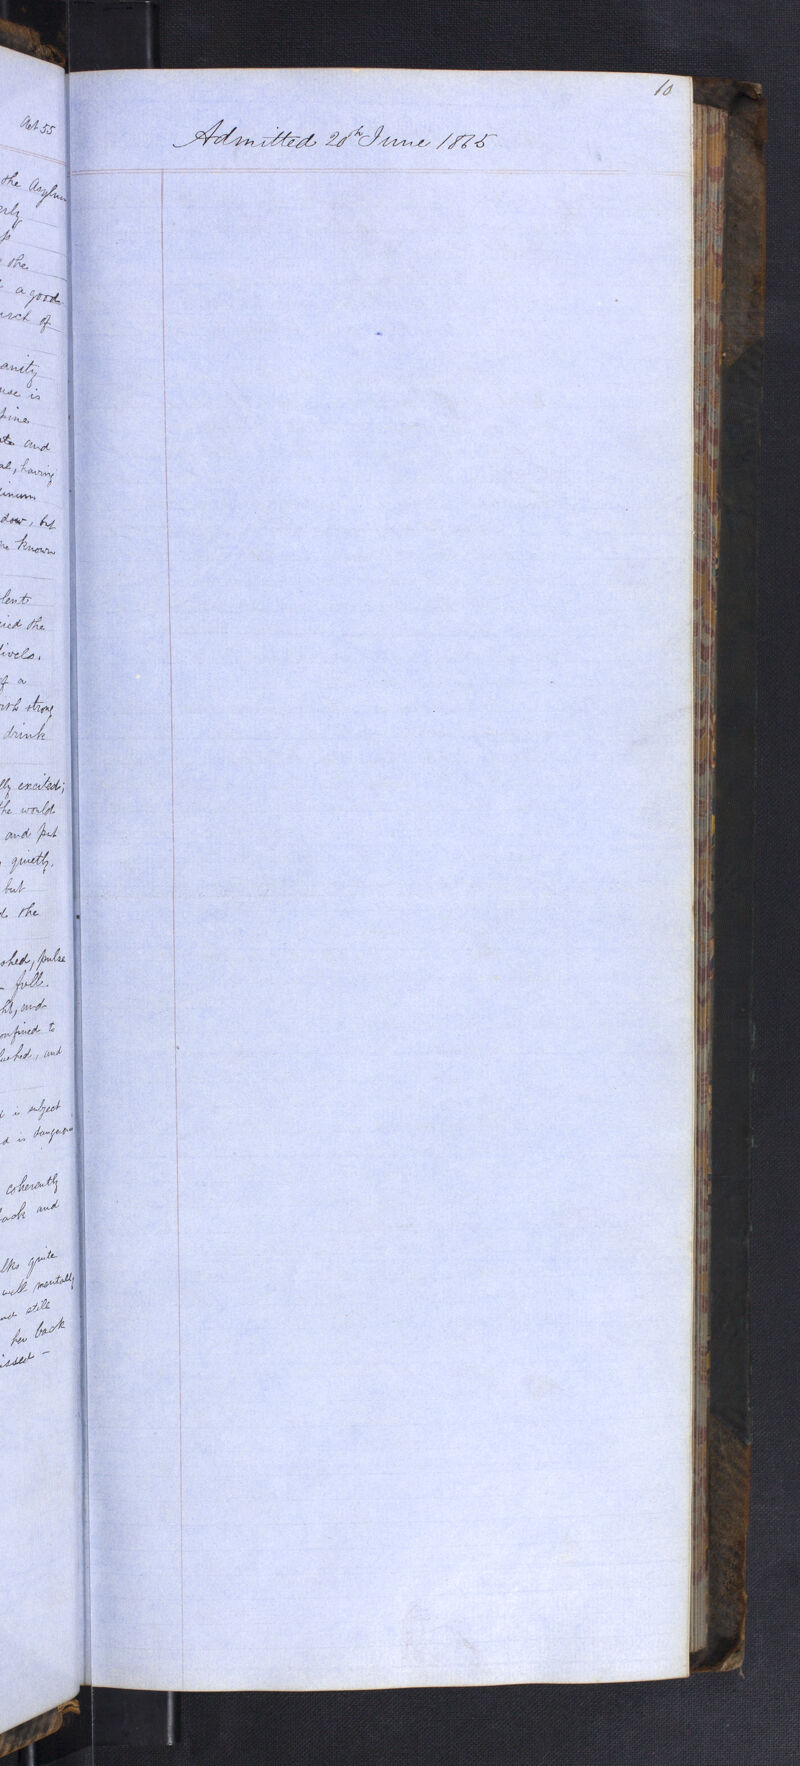 Aet 55
the Asylum
the
a good
of
anity
is
and
having
dow, but
known
lent
ried the
of a
strong
drink
lly excited;
he would
and put
quietly,
but
the
shed, pulse
full.
and
onfined to
and
is subject
d is dangerous
coherently
back and
lks quite
well mentally
still
her back
issed —
10
Admitted 20th June 1865